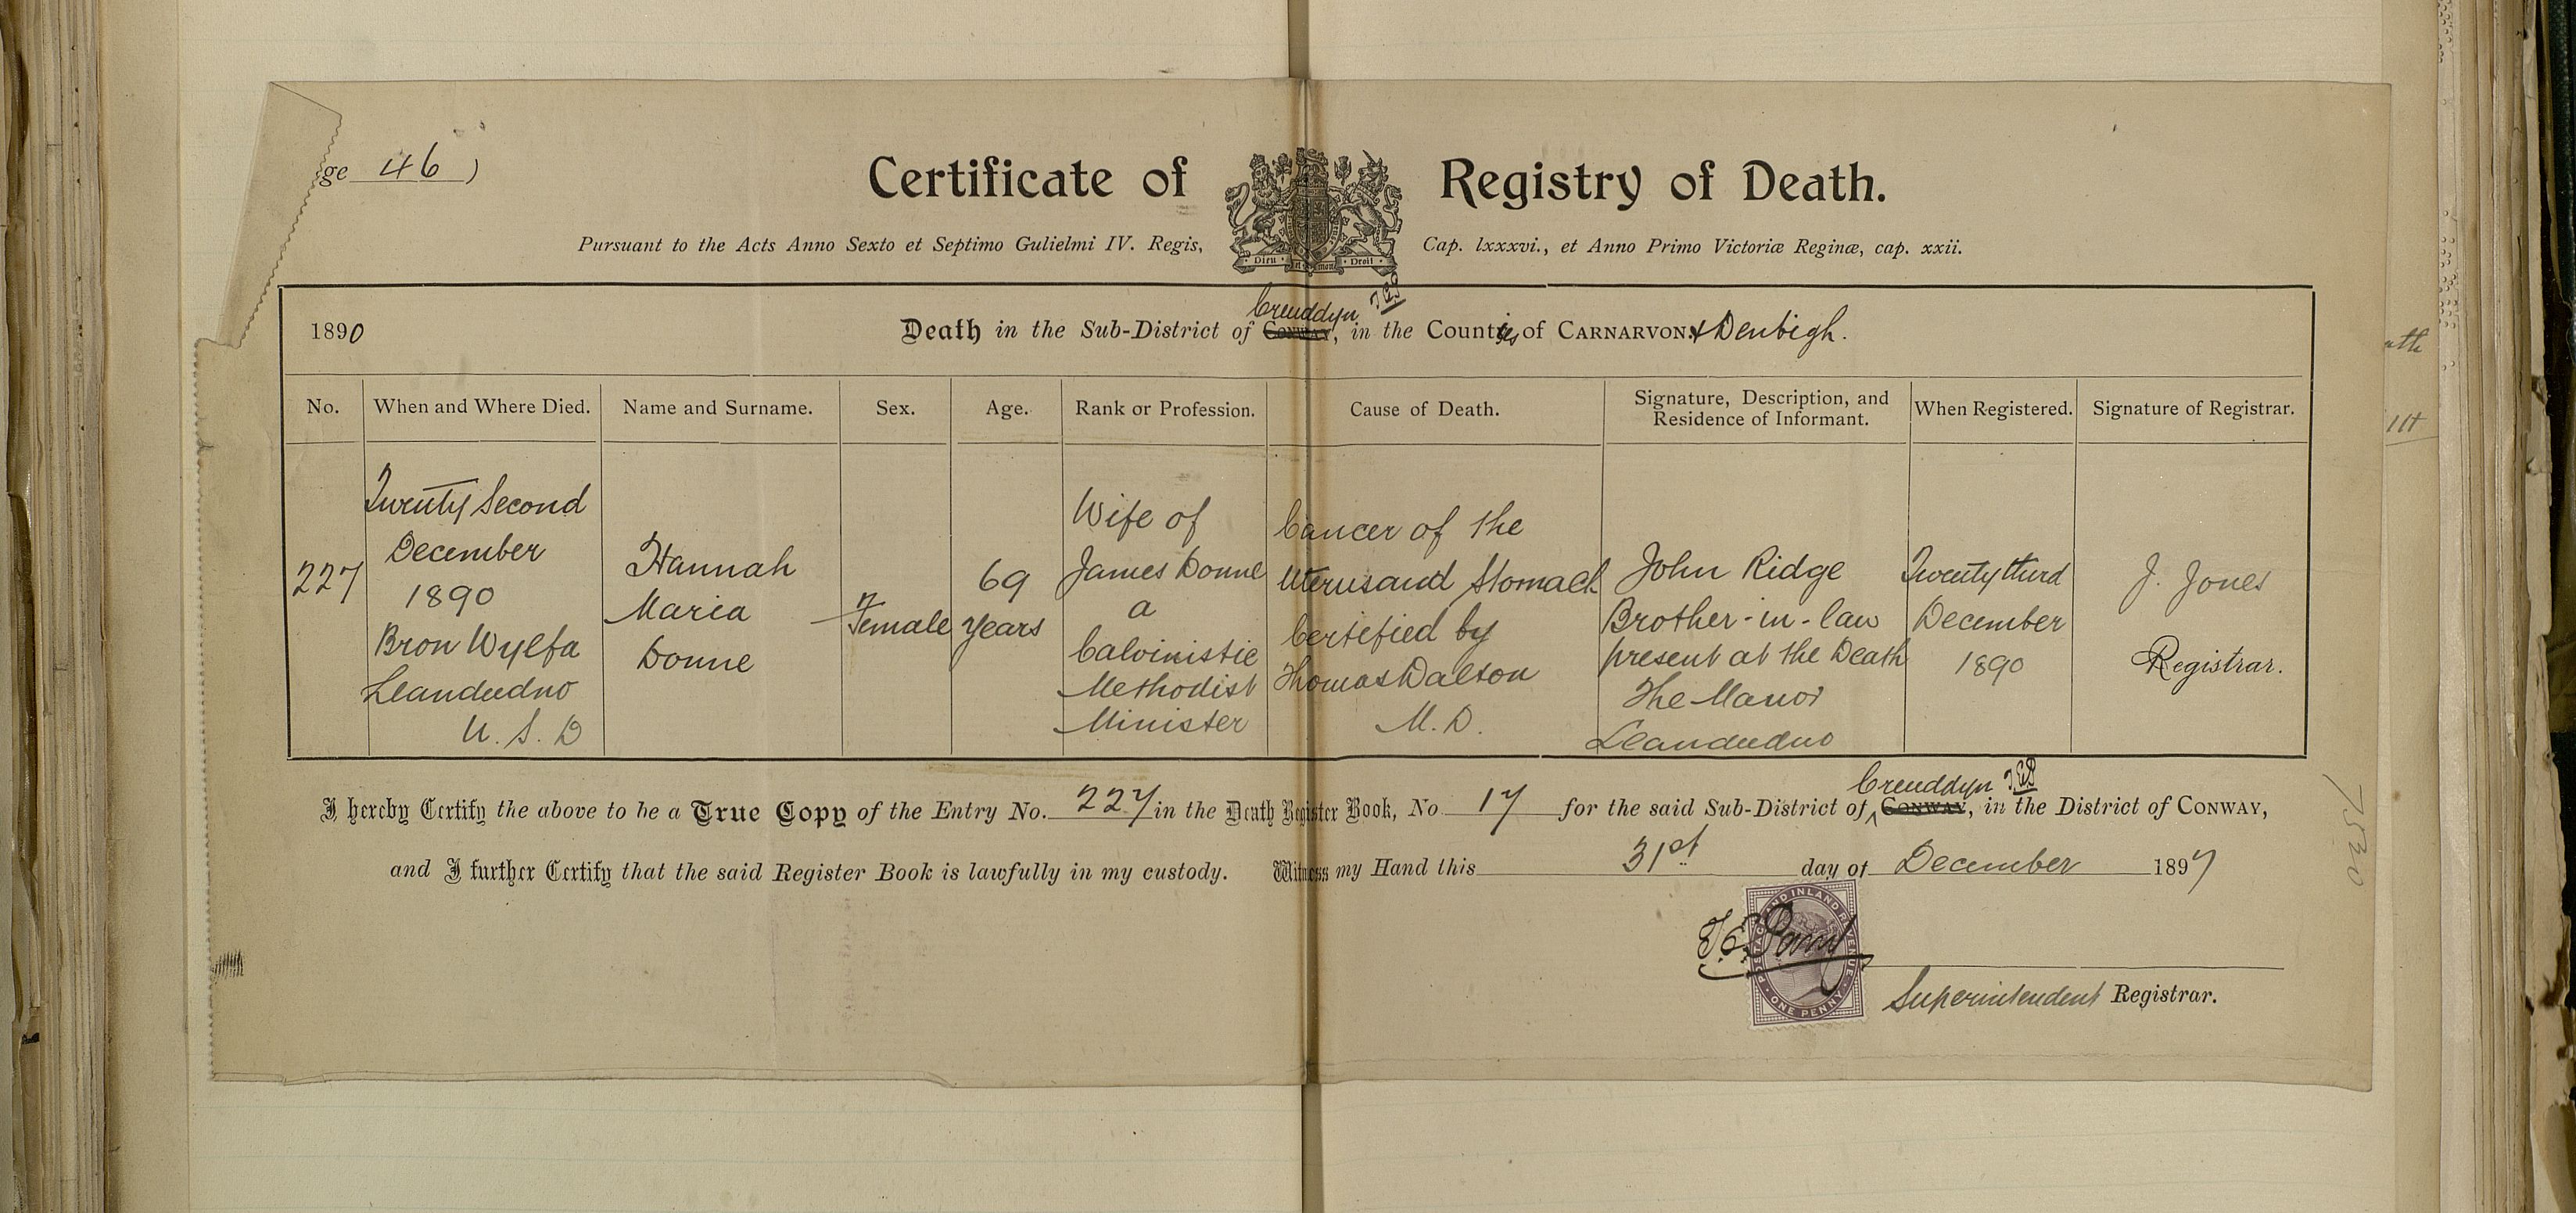 ge 46 )
Certificate of Registry of Death.
Pursuant to the Acts Anno Sexto et Septimo Gulielmi IV. Regis, Cap. lxxxvi., et Anno Primo Victoriæ Reginæ, cap. xxii.
Dieu et mon Droit
Creuddyn
1890 Death in the Sub-District of Conway, in the Counties of Carnarvon. & Denbigh.
No. When and Where Died. Name and Surname. Sex. Age. Rank or Profession. Cause of Death. Signature, Description, and Residence of Informant. When Registered. Signature of Registrar.
227
Twenty Second
December
1890
Bron Wylfa
Llandudno
U. S. D
Hannah
Maria
Donne
Female
69
years
Wife of
James Donne
a
Calvinistic
Methodist
Minister
Cancer of the
Uterus and Stomach
Certified by
Thomas Dalton
M. D.
John Ridge
Brother-in-law
present at the Death
The Manor
Llandudno
Twenty third
December
1890
J. Jones
Registrar.
Creuddyn
I hereby Certify the above to be a True Copy of the Entry No. 227 in the Death Register Book, No 17 for the said Sub-District of Conway, in the District of Conway,
and I further Certify that the said Register Book is lawfully in my custody. Witness my Hand this 31st day of December 1897
POSTAGE AND INLAND REVENUE
ONE PENNY
Superintendent Registrar.
7530